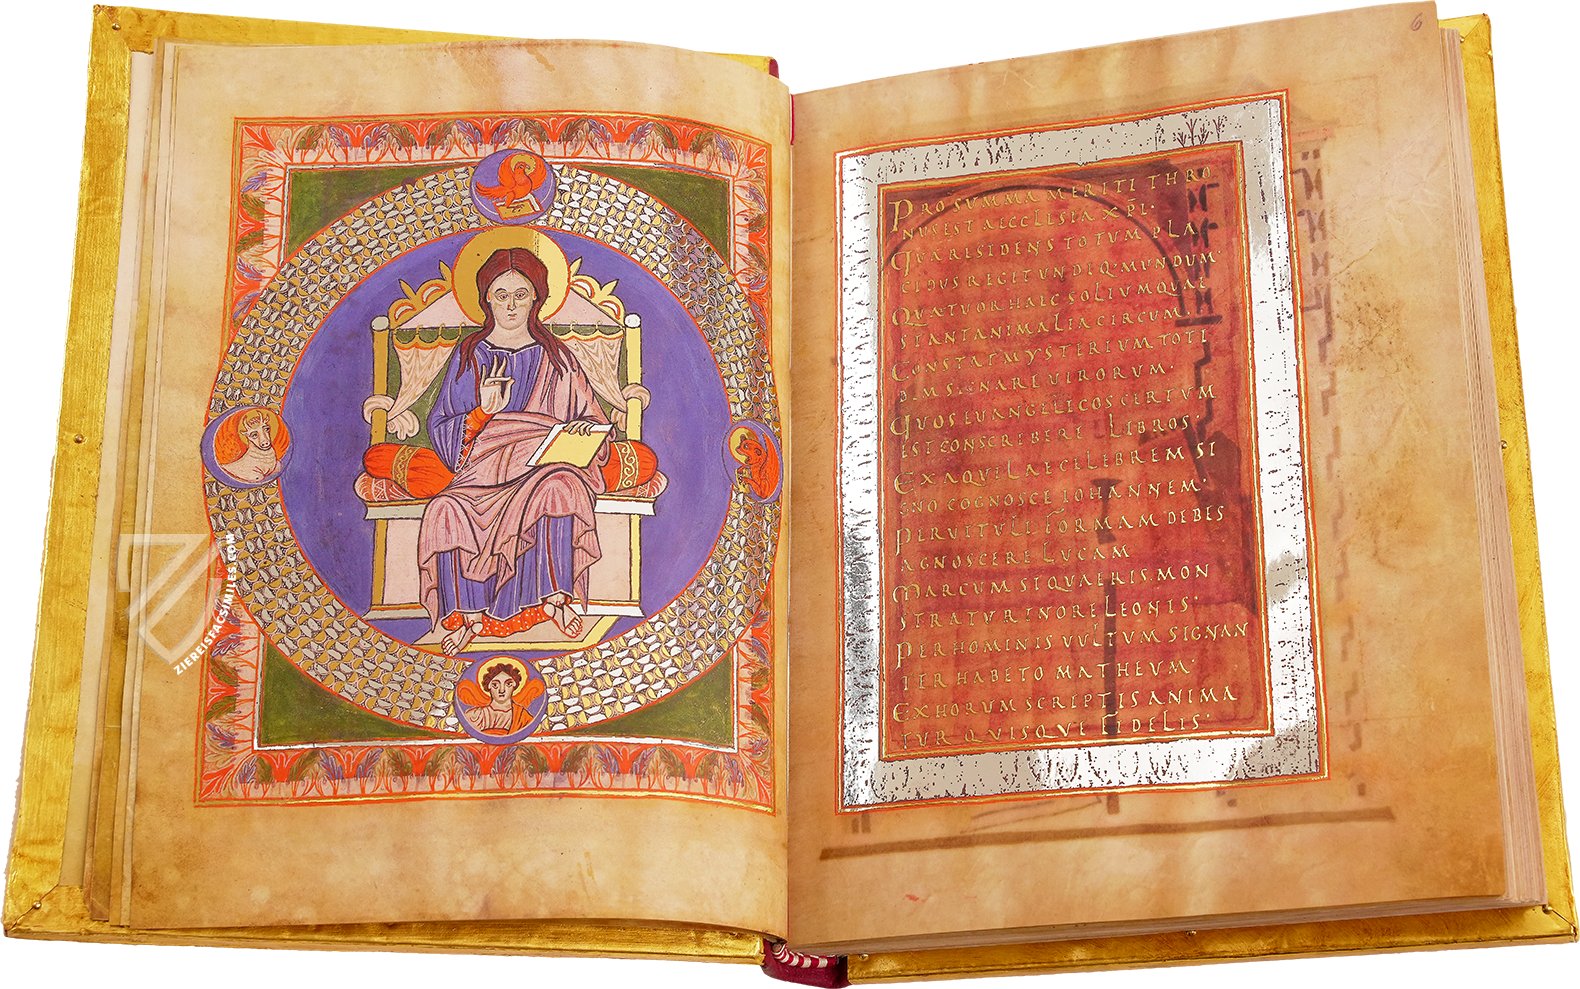 ZIEREISFACSIMILES.COM
6
PRO SUMMA MERITI THRO
NUS EST AECCLESIA XPI·
QUA RESIDENS TOTUM PLA
CIDUS REGIT UNDIQ· MUNDUM·
QUATUOR HAEC SOLIUM QUAE
STANT ANIMALIA CIRCUM·
CONSTAT MYSTERIUM TOTI
DEM SIGNARE VIRORUM·
QUOS EUANGELICOS CERTUM
EST CONSCRIBERE LIBROS·
EX AQUILAE CELEBREM SI
GNO COGNOSCE IOHANNEM·
PER VITULI FORMAM DEBES
AGNOSCERE LUCAM
MARCUM SI QUAERIS MON
STRATUR IN ORE LEONIS·
PER HOMINIS VULTUM SIGNAN
TER HABETO MATHEUM·
EX HORUM SCRIPTIS ANIMA
TUR QUISQUE FIDELIS·